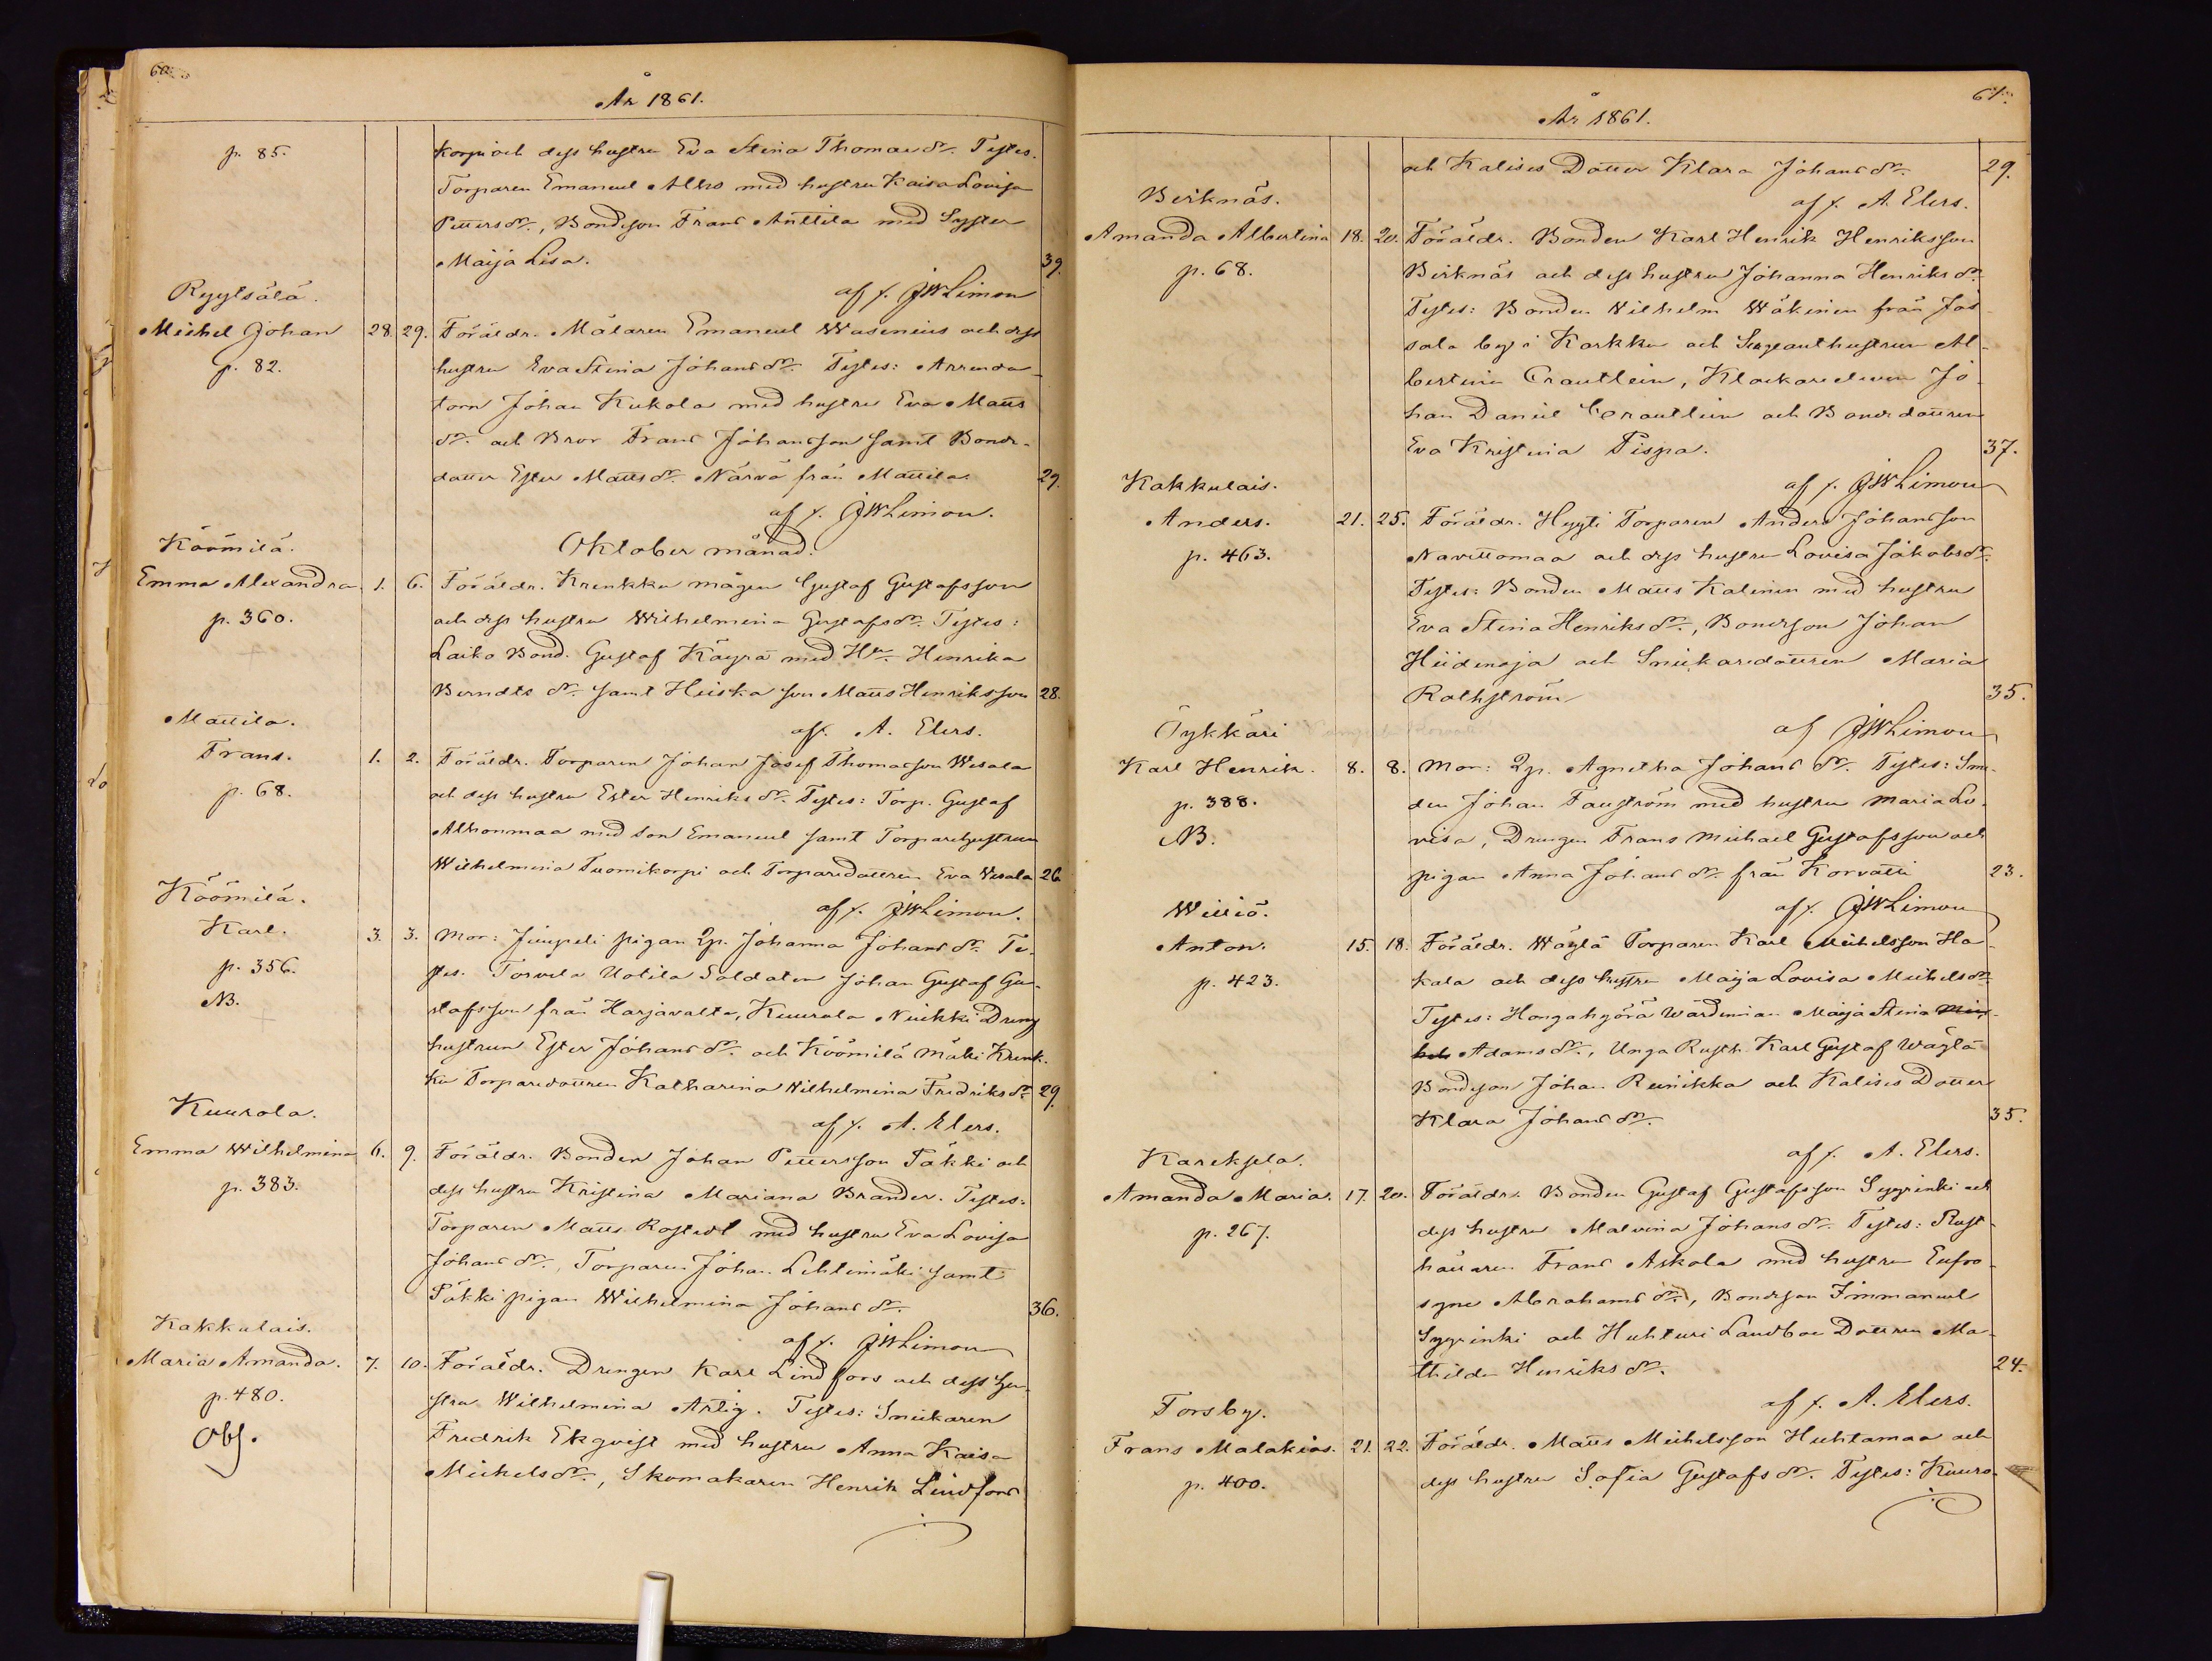 60
År 1861.
p. 85.
korpi och dess hustru Eva Stina Thomas dr. Testes.
Torparen Emanuel Alhs med hustru Kaisa Lovisa
Petters dr., Bondeson Frans Anttila med Syster
Maija Lisa. 39.
af f. JWLimon
Ryytsälä.
Michel Johan 28. 29. Föräldr. Målaren Emanuel Wasenius och dess
p. 82.
hustru Eva Stina Johans dr. Testes: Arrenda-
torn Johan Kukola med hustru Eva Matts
dr. och Bror Frans Johansson samt Bonde-
dotter Ester Matts dr. Närvä från Mattila. 29.
af f. JWLimon.
Oktober månad.
Köömilä.
Emma Alexandra. 1. 6. Föräldr. Krenkku mågen Gustaf Gustafsson
p. 360.
och dess hustru Wilhelmina Gustafs dr. Testes:
Laiko Bond. Gustaf Käyrä med Hu. Henrika
Berndts dr. samt Heiska son Matts Henriksson 28.
af f. A. Elers.
Mattila.
Frans. 1. 2. Föräldr. Torparen Johan Josef Thomasson Wesala
p. 68.
och dess hustru Ester Henriks dr. Testes: Torp. Gustaf
Alhonmaa med son Emanuel samt Torparehustrun
Wilhelmina Tuomikorpi och Torparedottren Eva Wesala 26
af f. JWLimon.
Köömilä.
Karl. 3. 3. Mor: Juupeli pigan Qp. Johanna Johans dr. Te-
p. 356.
stes. Torvela Uotila Soldaten Johan Gustaf Gu-
NB.
stafsson från Harjavalta, Kuurola Nuikki Dreng
hustrun Ester Johans dr. och Köömilä Mäki Krenk-
ku Torparedottren Katharina Wilhelmina Fredriks dr. 29.
af f. A. Elers.
Kuurola.
Emma Wilhelmina 6. 9. Föräldr. Bonden Johan Pettersson Päkki och
p. 383.
dess hustru Kristina Mariana Brander. Testes:
Torparen Matts Rostedt med hustru Eva Lovisa
Johans dr., Torparen Johan Lehtimäki samt
Päkki pigan Wilhelmina Johans dr. 36.
af f. JWLimon
Kakkulais.
Maria Amanda. 7. 10. Föräldr. Drengen Karl Lindfors och dess hu-
p. 480.
stru Wilhelmina Artig. Testes: Snickaren
Obs.
Fredrik Ekqvist med hustru Anna Kaisa
Michels dr., Skomakaren Henrik Lindfors
61.
År 1861.
och Kalisis Dotter Klara Johans dr. 29.
af f. A. Elers.
Birknäs.
Amanda Albertina 18. 20. Föräldr. Bonden Karl Henrik Henriksson
p. 68.
Birknäs och dess hustru Johanna Henriks dr.
Testes: Bonden Wilhelm Wäkinen från Jas
sala by i Karkku och Sergeanthustrun Al-
bertina Crautlein, Klockareeleven Jo-
han Daniel Crautlein och Bondedottren
Eva Kristina Pispa. 37.
af f. JWLimon
Kakkulais.
Anders. 21. 25. Föräldr. Hyyti Torparen Anders Johansson
p. 463.
Navettomaa och dess hustru Lovisa Jakobs dr.
Testes: Bonden Matts Kalinen med hustru
Eva Stina Henriks dr., Bondeson Johan
Hiidenoja och Snickaredottren Maria
Rathström 35.
af JWLimon
Tykkäri
Karl Henrik. 8. 8. Mor: Qp. Agnetha Johans dr. Testes: Sme-
p. 388.
den Johan Fagström med hustru Maria Lo-
NB.
visa, Drengen Frans Michael Gustafsson och
pigan Anna Johans dr. från Korvatti 23.
af f. JWLimon
Williö.
Anton. 15. 18. Föräldr. Wäylä Torparen Karl Michelsson Ha-
p. 423.
kala och dess hustru Maija Lovisa Michels dr.
Testes: Hongahyörä Wärdinnan Maija Stina Mic-
hels Adams dr., Unga Rusth. Karl Gustaf Wäylä
Bondeson Johan Reinikka och Kalisis Dotter
Klara Johans dr. 35.
af f. A. Elers.
Kareksela.
Amanda Maria. 17. 20. Föräldr. Bonden Gustaf Gustafsson Syyrinki och
p. 267.
dess hustru Malvina Johans dr. Testes: Rust-
hållaren Frans Askola med hustru Eufro-
syne Abrahams dr., Bondeson Immanuel
Syyrinki och Huhturi Landboe Dottren Ma-
thilda Henriks dr. 24.
af f. A. Elers.
Forsby.
Frans Malakias. 21. 22. Föräldr. Matts Michelsson Huhtamaa och
p. 400.
dess hustru Sofia Gustafs dr. Testes: Kuuro-